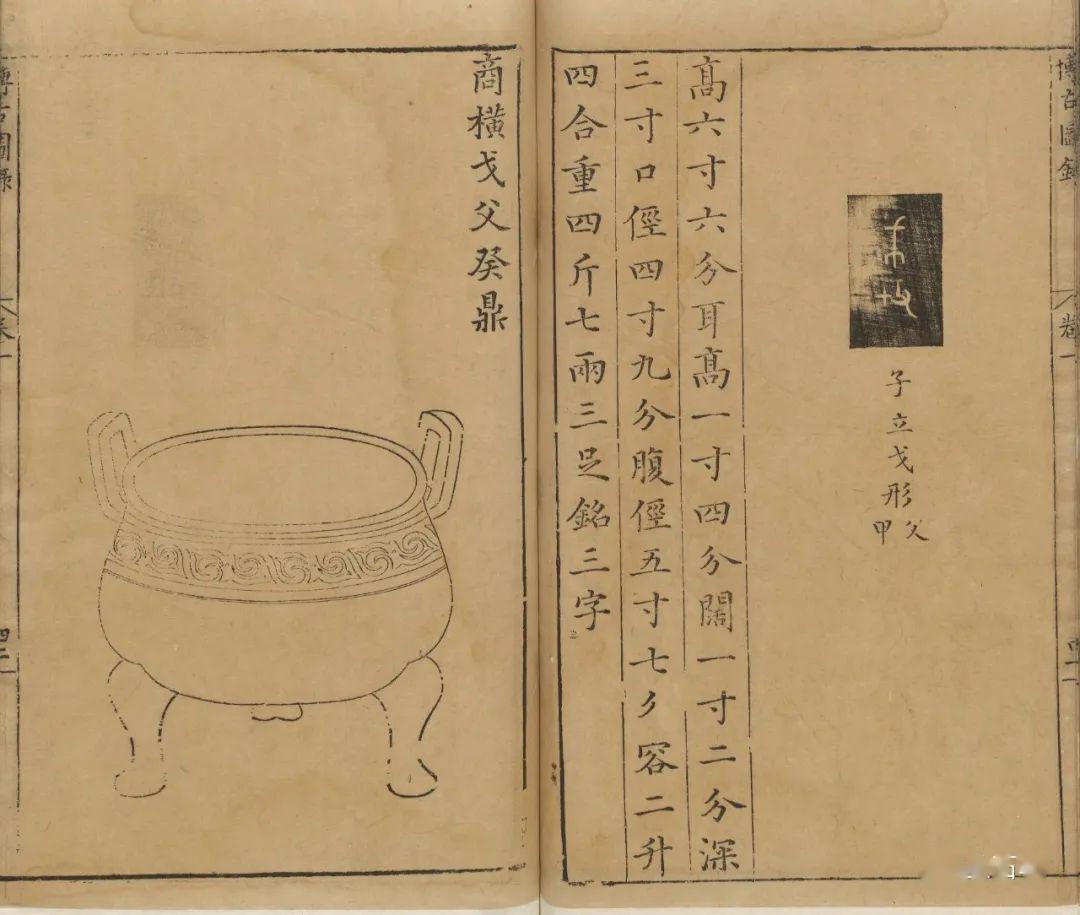 博古圖錄
卷一
子立戈形父
甲
高六寸六分耳高一寸四分闊一寸二分深
三寸口徑四寸九分腹徑五寸七分容二升
四合重四斤七兩三足銘三字
商橫戈父癸鼎
博古圖錄
卷一